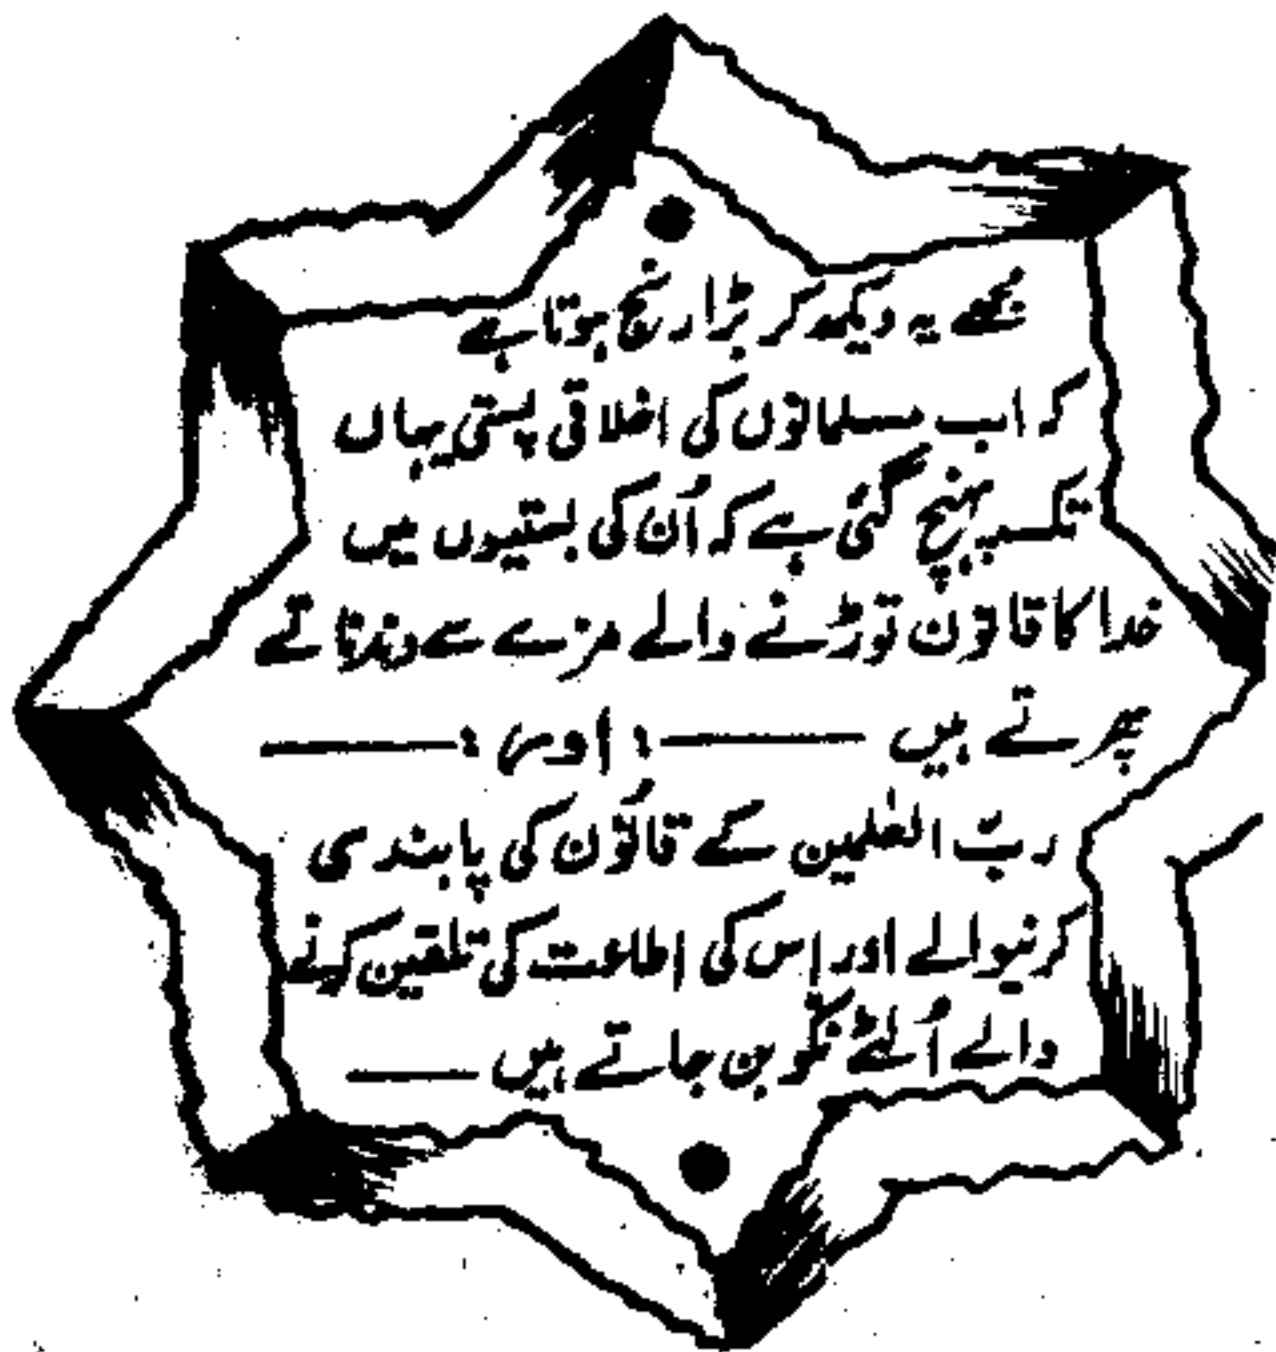 مُجھے یہ دیکھ کر بڑا رنج ہوتا ہے
کہ اب مسلمانوں کی اخلاقی پستی یہاں
تک پہنچ گئی ہے کہ اُن کی بستیوں میں
خدا کا قانون توڑنے والے مزے سے دندناتے
پھرتے ہیں ——— ؛ اور ؛ ———
ربّ العٰلمین کے قانُون کی پابندی
کرنیوالے اور اِس کی اطاعت کی تلقین کرنے
والے اُلٹے نکّو بن جاتے ہیں ———